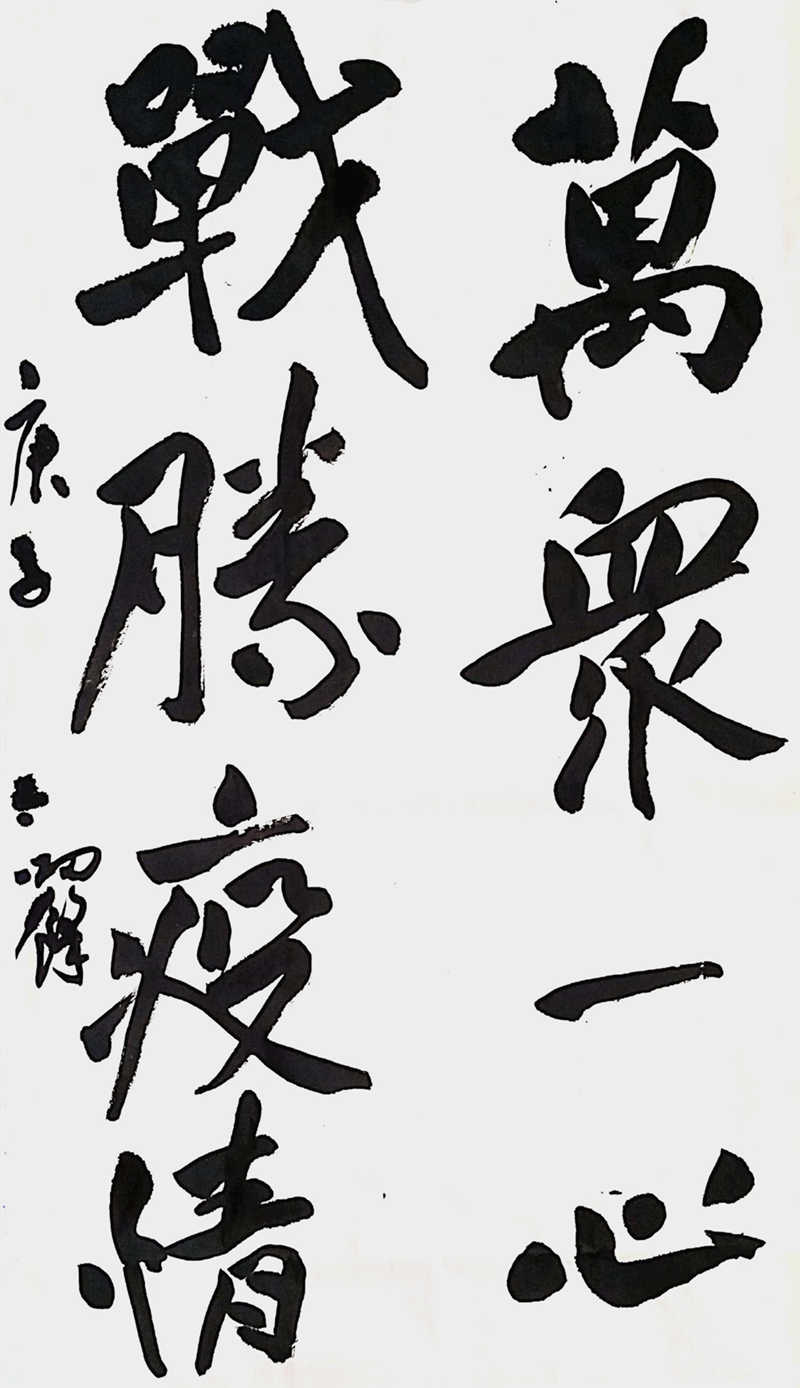 萬眾一心
戰勝疫情
庚子